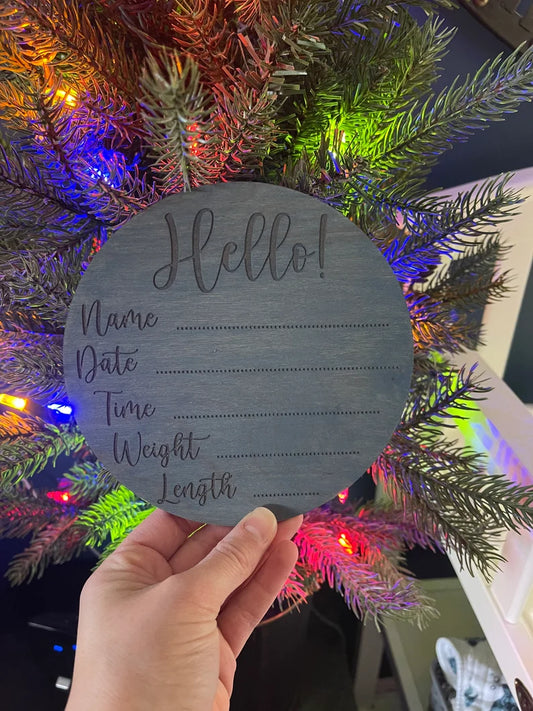 Hello!
Name ........................................
Date ........................................
Time ........................................
Weight ..............................
Length ...............